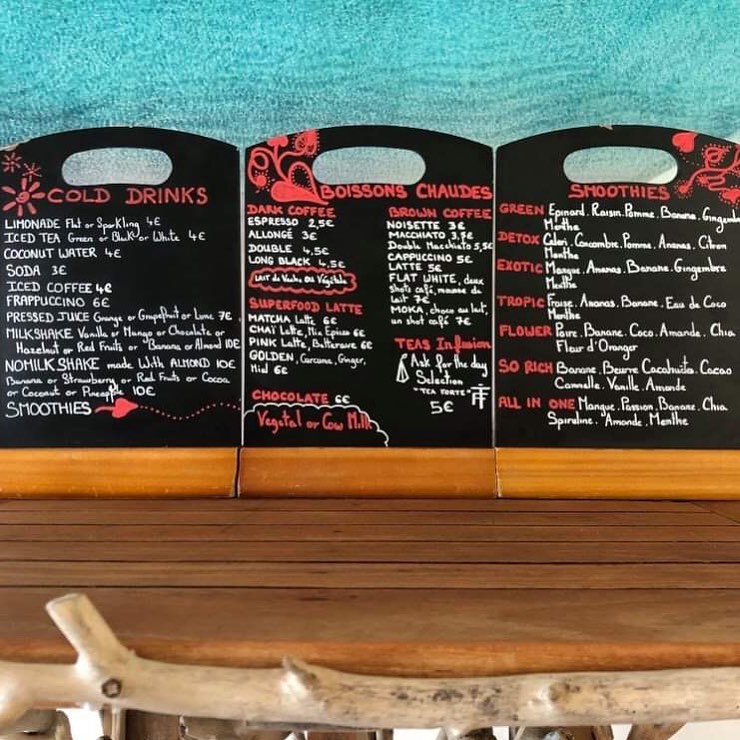 COLD DRINKS
LIMONADE Flat or Sparkling 4€
ICED TEA Green or Black or White 4€
COCONUT WATER 4€
SODA 3€
ICED COFFEE 4€
FRAPPUCCINO 6€
PRESSED JUICE Orange or Grapefruit or Lime 7€
MILKSHAKE Vanilla or Mango or Chocolate or
Hazelnut or Red Fruits or Banana or Almond 10€
NOMILKSHAKE made With ALMOND 10€
Banana or Strawberry or Red Fruits or Cocoa
or Coconut or Pineapple 10€
SMOOTHIES
BOISSONS CHAUDES
DARK COFFEE
ESPRESSO 2,5€
ALLONGÉ 3€
DOUBLE 4,5€
LONG BLACK 4,5€
Lait de Vache ou Végétale
SUPERFOOD LATTE
MATCHA Latte 6€
CHAÏ Latte, Mix Epices 6€
PINK Latte, Betterave 6€
GOLDEN, Curcuma, Ginger,
Miel 6€
CHOCOLATE 6€
Vegetal or Cow Milk
BROWN COFFEE
NOISETTE 3€
MACCHIATO 3,5€
Double Macchiato 5,5€
CAPPUCCINO 5€
LATTE 5€
FLAT WHITE, deux
shots café, mousse de
lait 7€
MOKA, choco au lait,
un shot café 7€
TEAS Infusion
Ask for the day
Selection
"TEA FORTE"
5€
SMOOTHIES
GREEN Epinard. Raisin. Pomme. Banane. Gingembre
Menthe
DETOX Celeri. Concombre. Pomme. Ananas. Citron
Menthe
EXOTIC Mangue. Ananas. Banane. Gingembre
Menthe
TROPIC Fraise. Ananas. Banane. Eau de Coco
Menthe
FLOWER Poire. Banane. Coco. Amande. Chia
Fleur d'Oranger
SO RICH Banane. Beurre Cacahuète. Cacao
Cannelle. Vanille. Amande
ALL IN ONE Mangue. Passion. Banane. Chia
Spiruline. Amande. Menthe